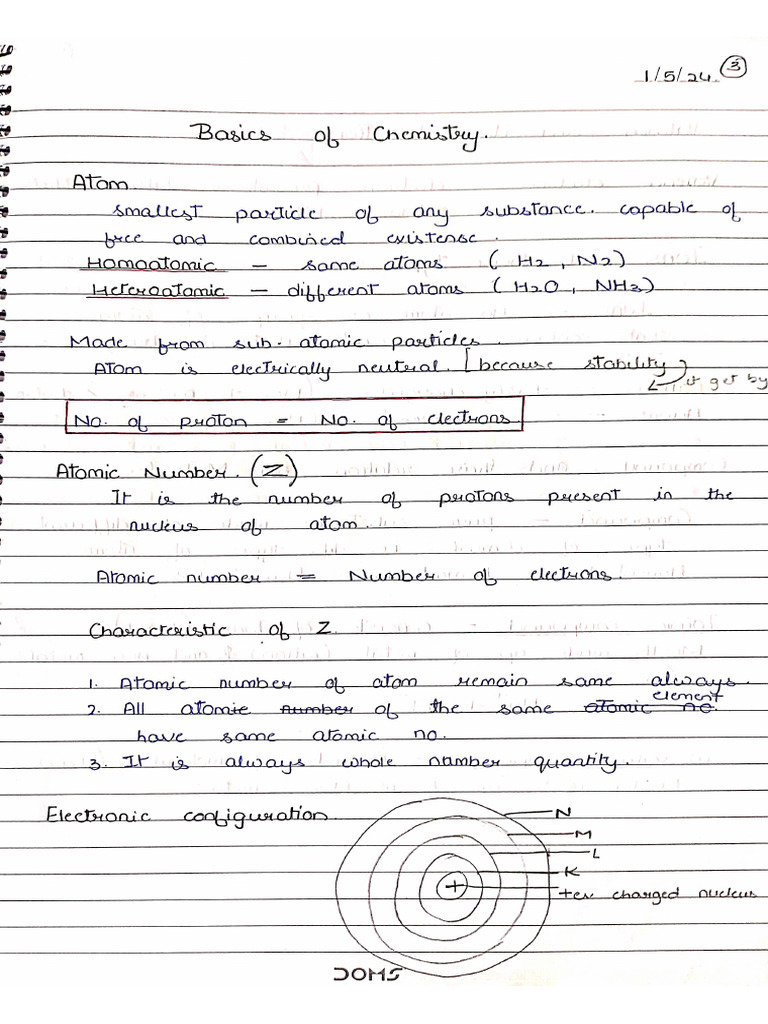 1/5/24. 3
Basics of Chemistry.
Atom
smallest particle of any substance. capable of
free and combined existense.
Homoatomic – same atoms ( H2 , N2 )
Heteroatomic – different atoms ( H2O , NH3 )
Made from sub-atomic particles.
Atom is electrically neutral. [because stability]
it get by
No. of proton = No. of electrons
Atomic Number. (Z)
It is the number of protons present in the
nucleus of atom.
Atomic number = Number of electrons.
Characteristic of Z
1. Atomic number of atom remain same always.
element
2. All atomic number of the same atomic no.
have same atomic no.
3. It is always whole number quantity.
Electronic configuration.
N
M
L
K
+
+ev charged nucleus
DOMS